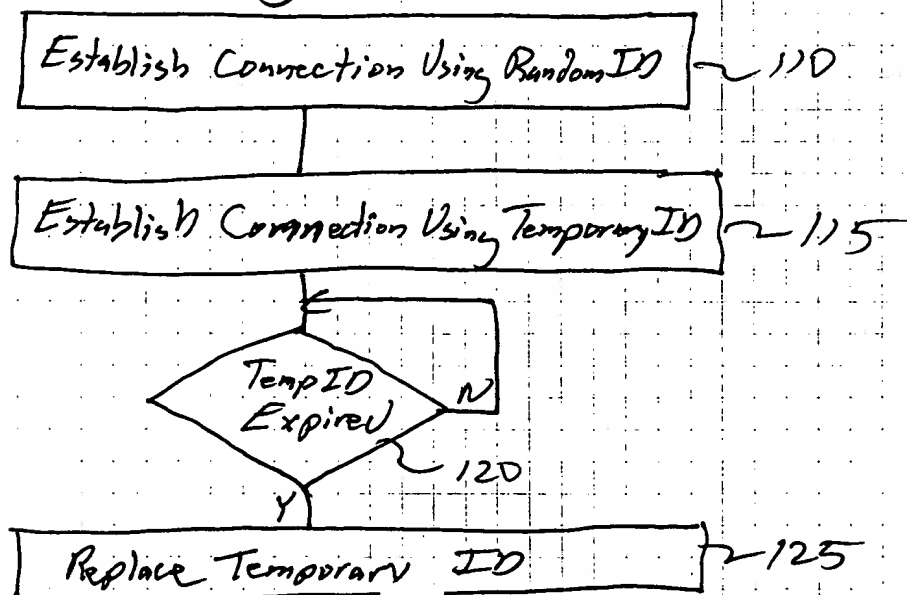 Establish Connection Using Random ID 110
Establish Connection Using Temporary ID 115
Temp ID
Expired
N
120
Y
Replace Temporary ID 125